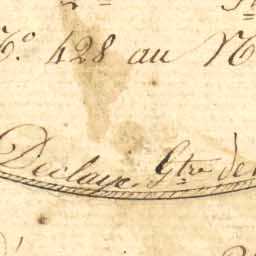 N.º 428 au N
Declaye. Gtre de